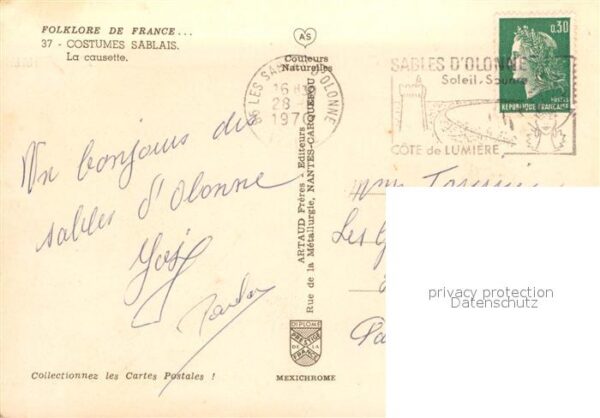 FOLKLORE DE FRANCE...
37 - COSTUMES SABLAIS.
La causette.
AS
Couleurs
Naturelles
LES SABLES D'OLONNE
16 H
28
1970
SABLES D'OLONNE
Soleil-Source
CÔTE de LUMIÈRE
0,30
POSTES
REPUBLIQUE FRANÇAISE
Un bonjour des
sables d'Olonne
ARTAUD Frères - Editeurs
Rue de la Métallurgie, NANTES-CARQUEFOU
Les
privacy protection
Datenschutz
DIPLOME
PRESTIGE
DE LA
FRANCE
MEXICHROME
Collectionnez les Cartes Postales !